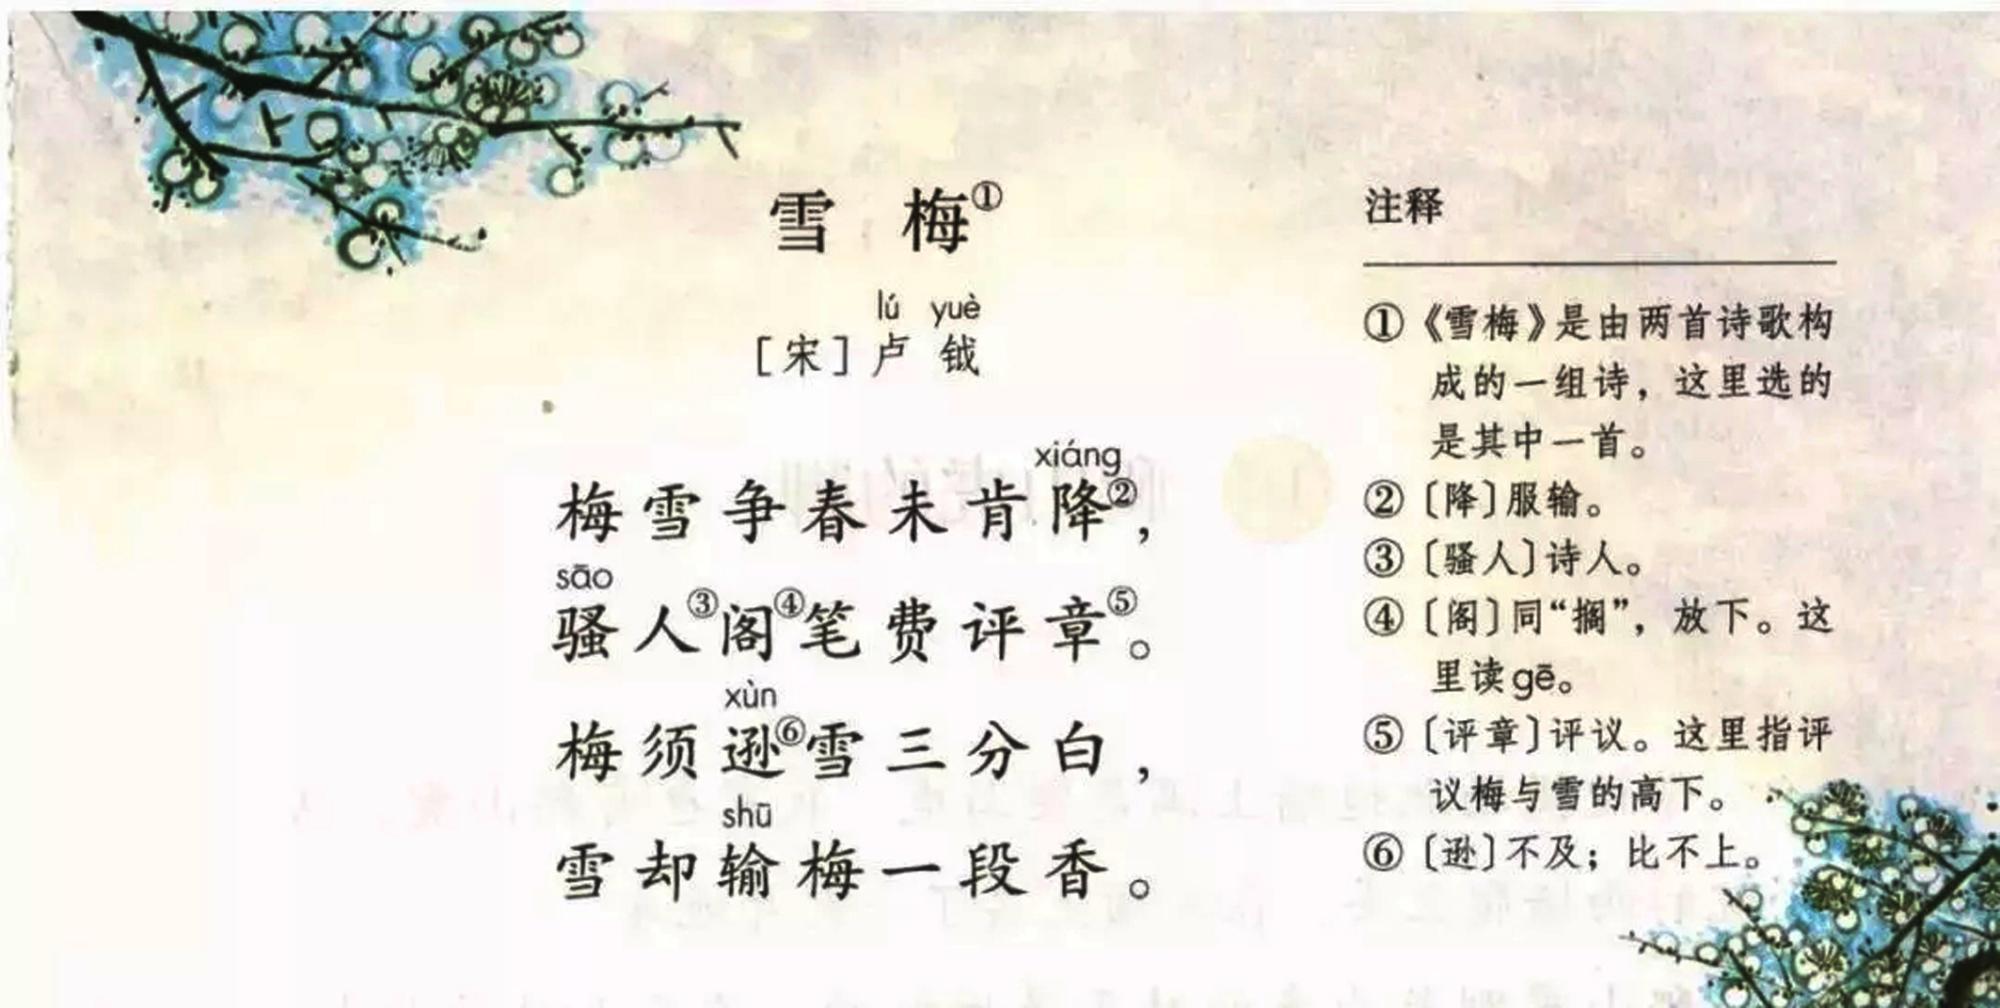 雪 梅①
lú yuè
[宋] 卢 钺
xiáng
梅雪争春未肯降②，
sāo
骚人③阁④笔费评章⑤。
xùn
梅须逊⑥雪三分白，
shū
雪却输梅一段香。
注释
①《雪梅》是由两首诗歌构
成的一组诗，这里选的
是其中一首。
②〔降〕服输。
③〔骚人〕诗人。
④〔阁〕同“搁”，放下。这
里读gē。
⑤〔评章〕评议。这里指评
议梅与雪的高下。
⑥〔逊〕不及；比不上。